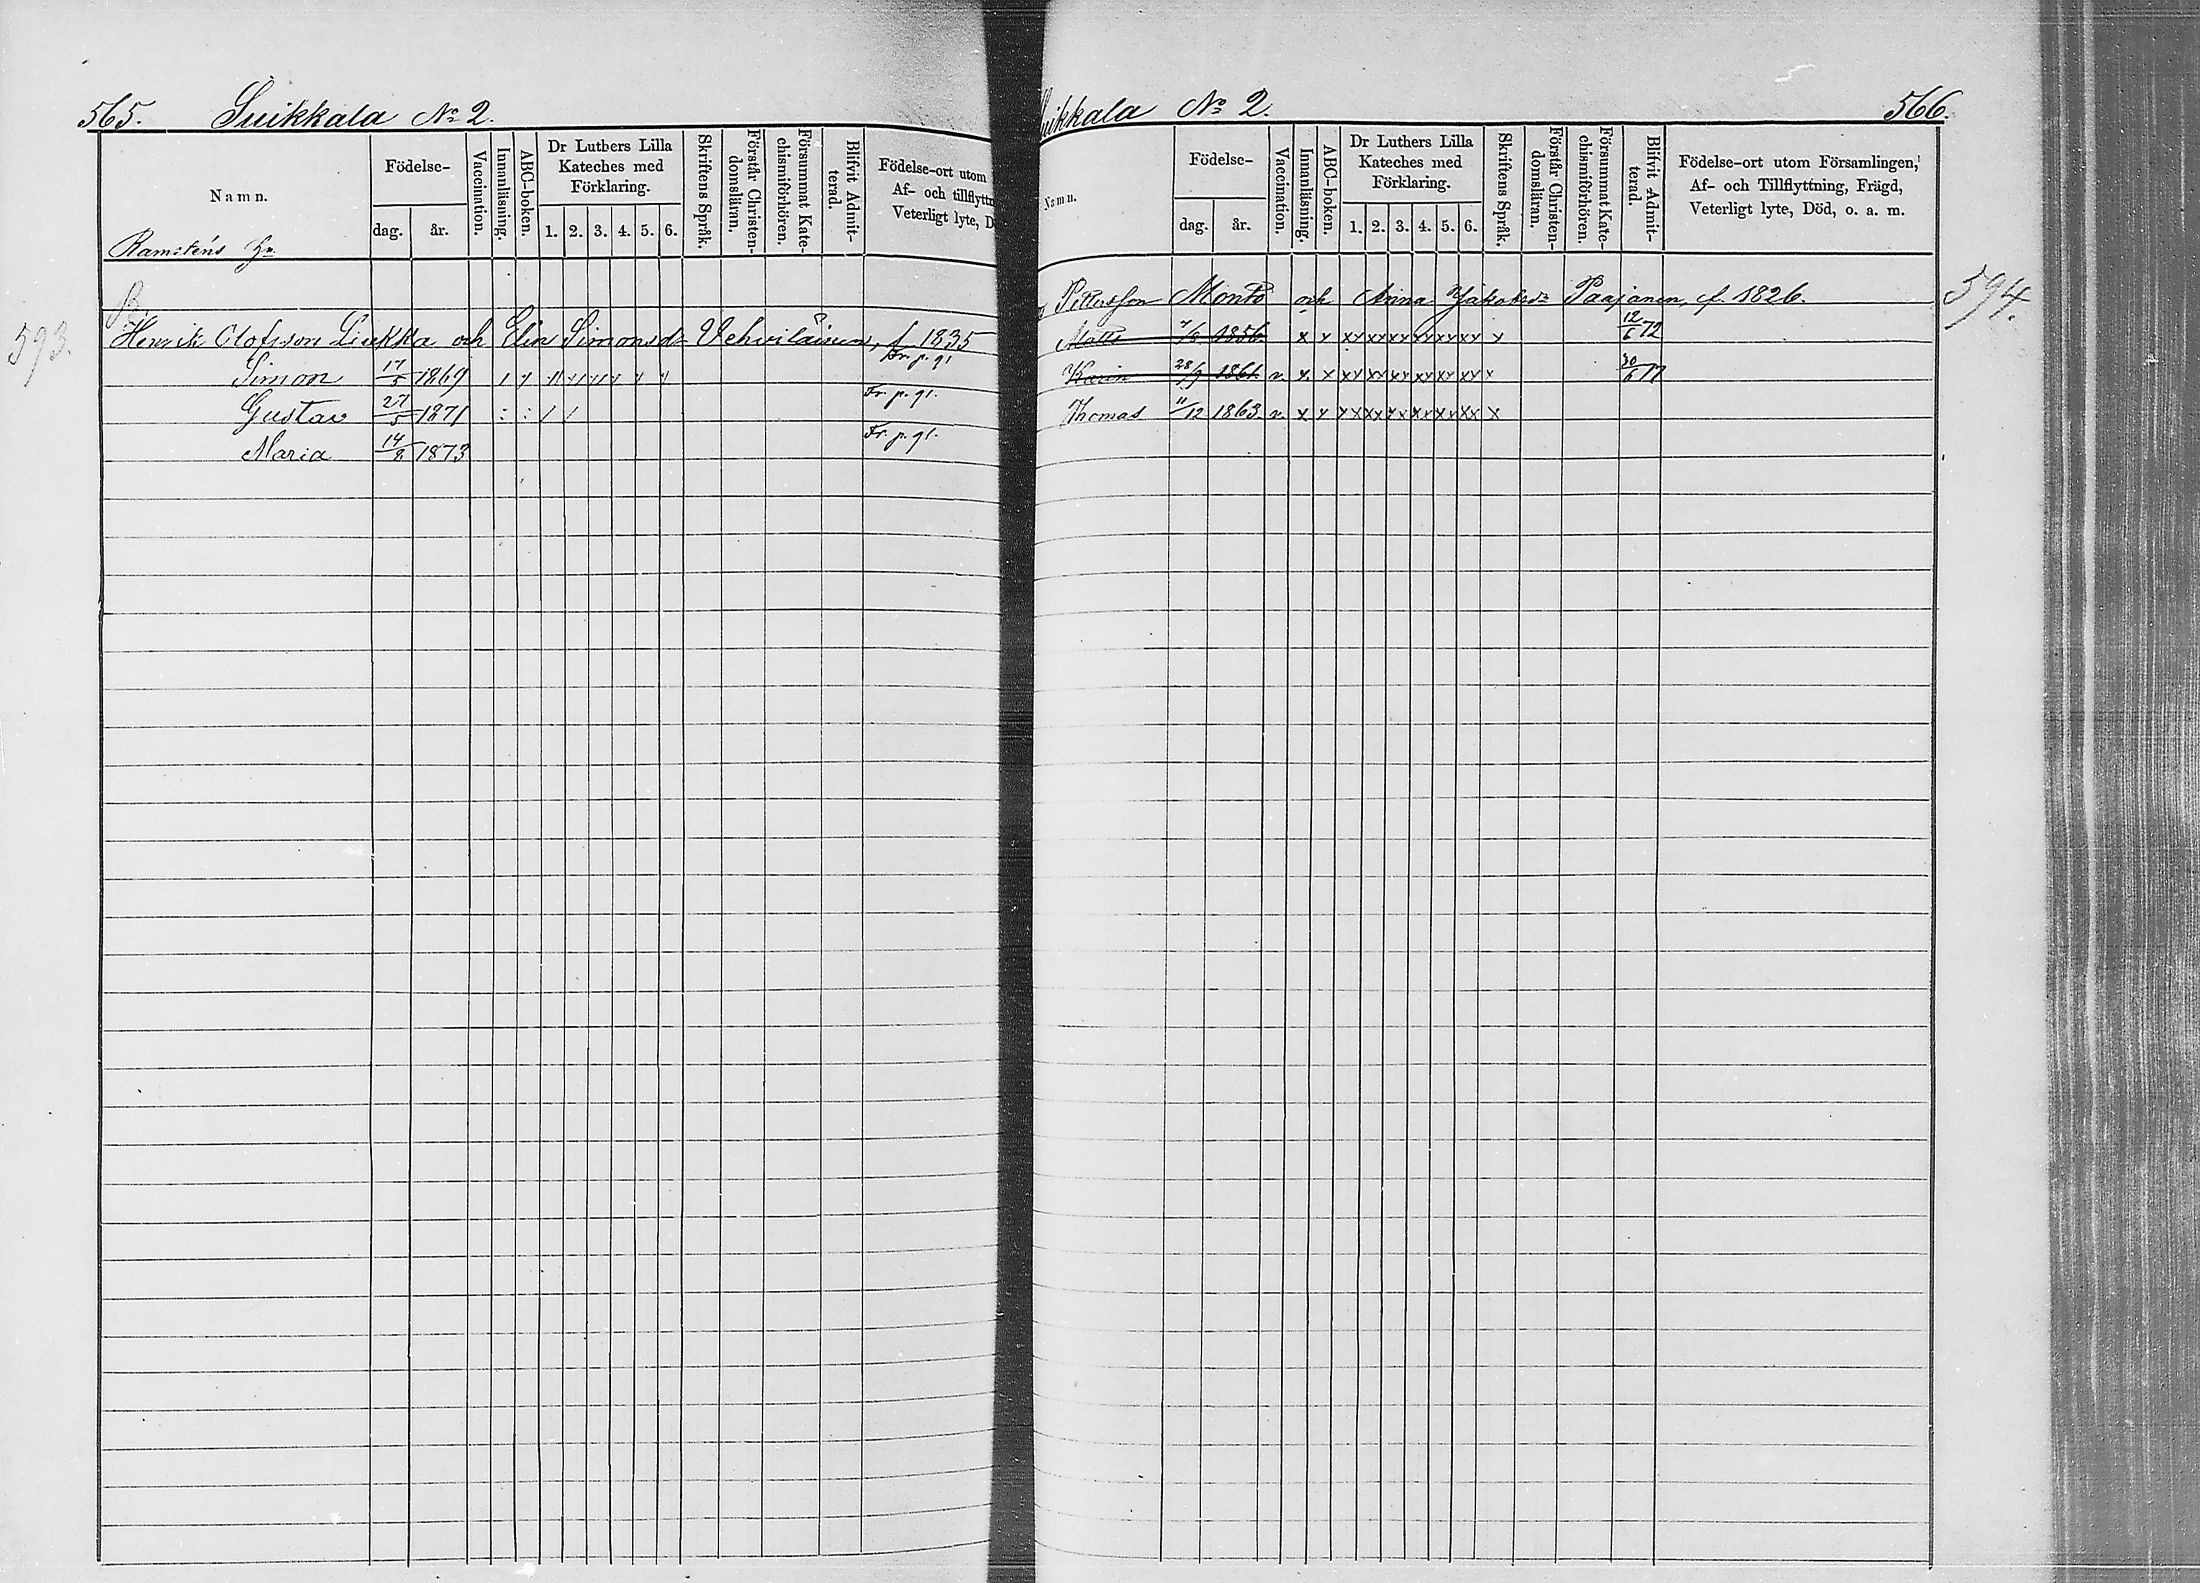 565. Suikkala No 2.
Namn.
Födelse-
dag. år.
Vaccination.
Innanläsning.
ABC-boken.
Dr Luthers Lilla Kateches med Förklaring.
1. 2. 3. 4. 5. 6.
Skriftens Språk.
Förstår Christen-domsläran.
Försummat Kate-chismiförhören.
Blifvit Admit-terad.
Födelse-ort utom
Af- och tillflyttn
Veterligt lyte, D
593.
Henrik Olofsson Liukka och Elin Simonsd:r Vehviläinen, f. 1835
Simon 17/5 1869 Fr. p. 91
Gustav 27/5 1871 Fr. p. 91.
Maria 14/8 1873 Fr. p. 91.
uikkala No 2. 566.
Namn.
Födelse-
dag. år.
Vaccination.
Innanläsning.
ABC-boken.
Dr Luthers Lilla Kateches med Förklaring.
1. 2. 3. 4. 5. 6.
Skriftens Språk.
Förstår Christen-domsläran.
Försummat Kate-chismiförhören.
Blifvit Admit-terad.
Födelse-ort utom Församlingen,
Af- och Tillflyttning, Frägd,
Veterligt lyte, Död, o. a. m.
594.
Pettersson Monto och Anna Jakobsd:r Paajanen, f. 1826.
Matts 1856 x x xx xx xx xx xx xx x 12/6 72
Karin 28/9 1861 v. x x xx xx xx xx xx xx x 30/6 77
Thomas 11/12 1863 v. x x xx xx xx xx xx xx x